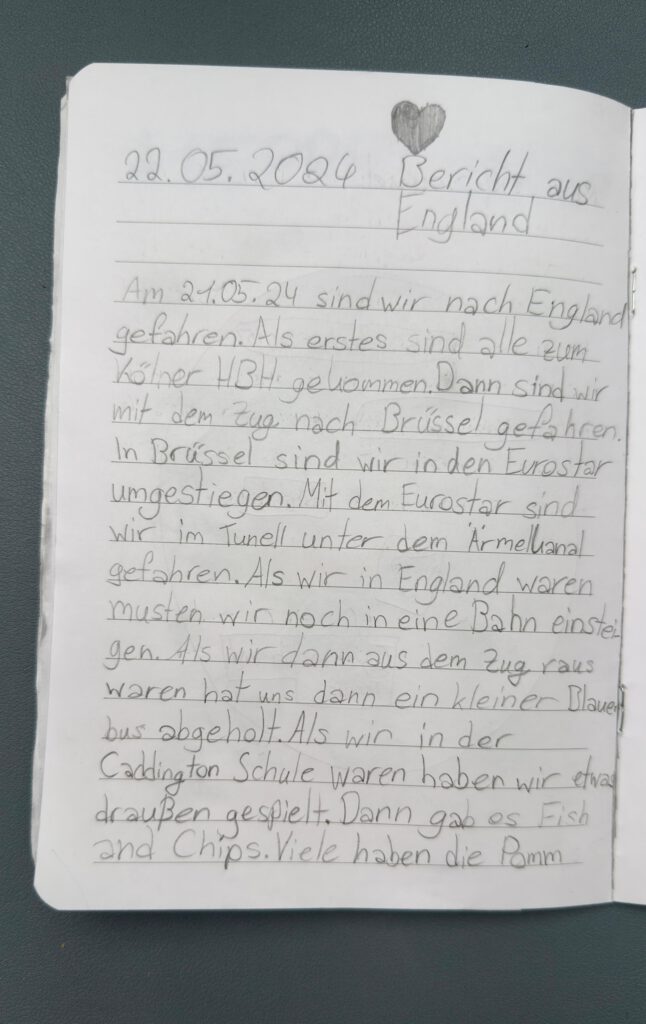 22.05.2024 Bericht aus
England
Am 21.05.24 sind wir nach England
gefahren. Als erstes sind alle zum
Kölner HBH. gekommen. Dann sind wir
mit dem Zug nach Brüssel gefahren.
In Brüssel sind wir in den Eurostar
umgestiegen. Mit dem Eurostar sind
wir im Tunell unter dem Ärmelkanal
gefahren. Als wir in England waren
musten wir noch in eine Bahn einstei
gen. Als wir dann aus dem Zug raus
waren hat uns dann ein kleiner Blauer
bus abgeholt. Als wir in der
Caddington Schule waren haben wir etwas
draußen gespielt. Dann gab es Fish
and Chips. Viele haben die Pomm